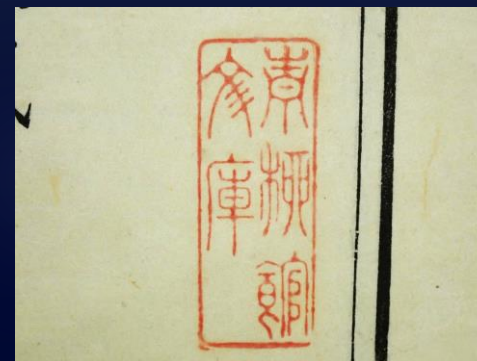 青柳館
文庫